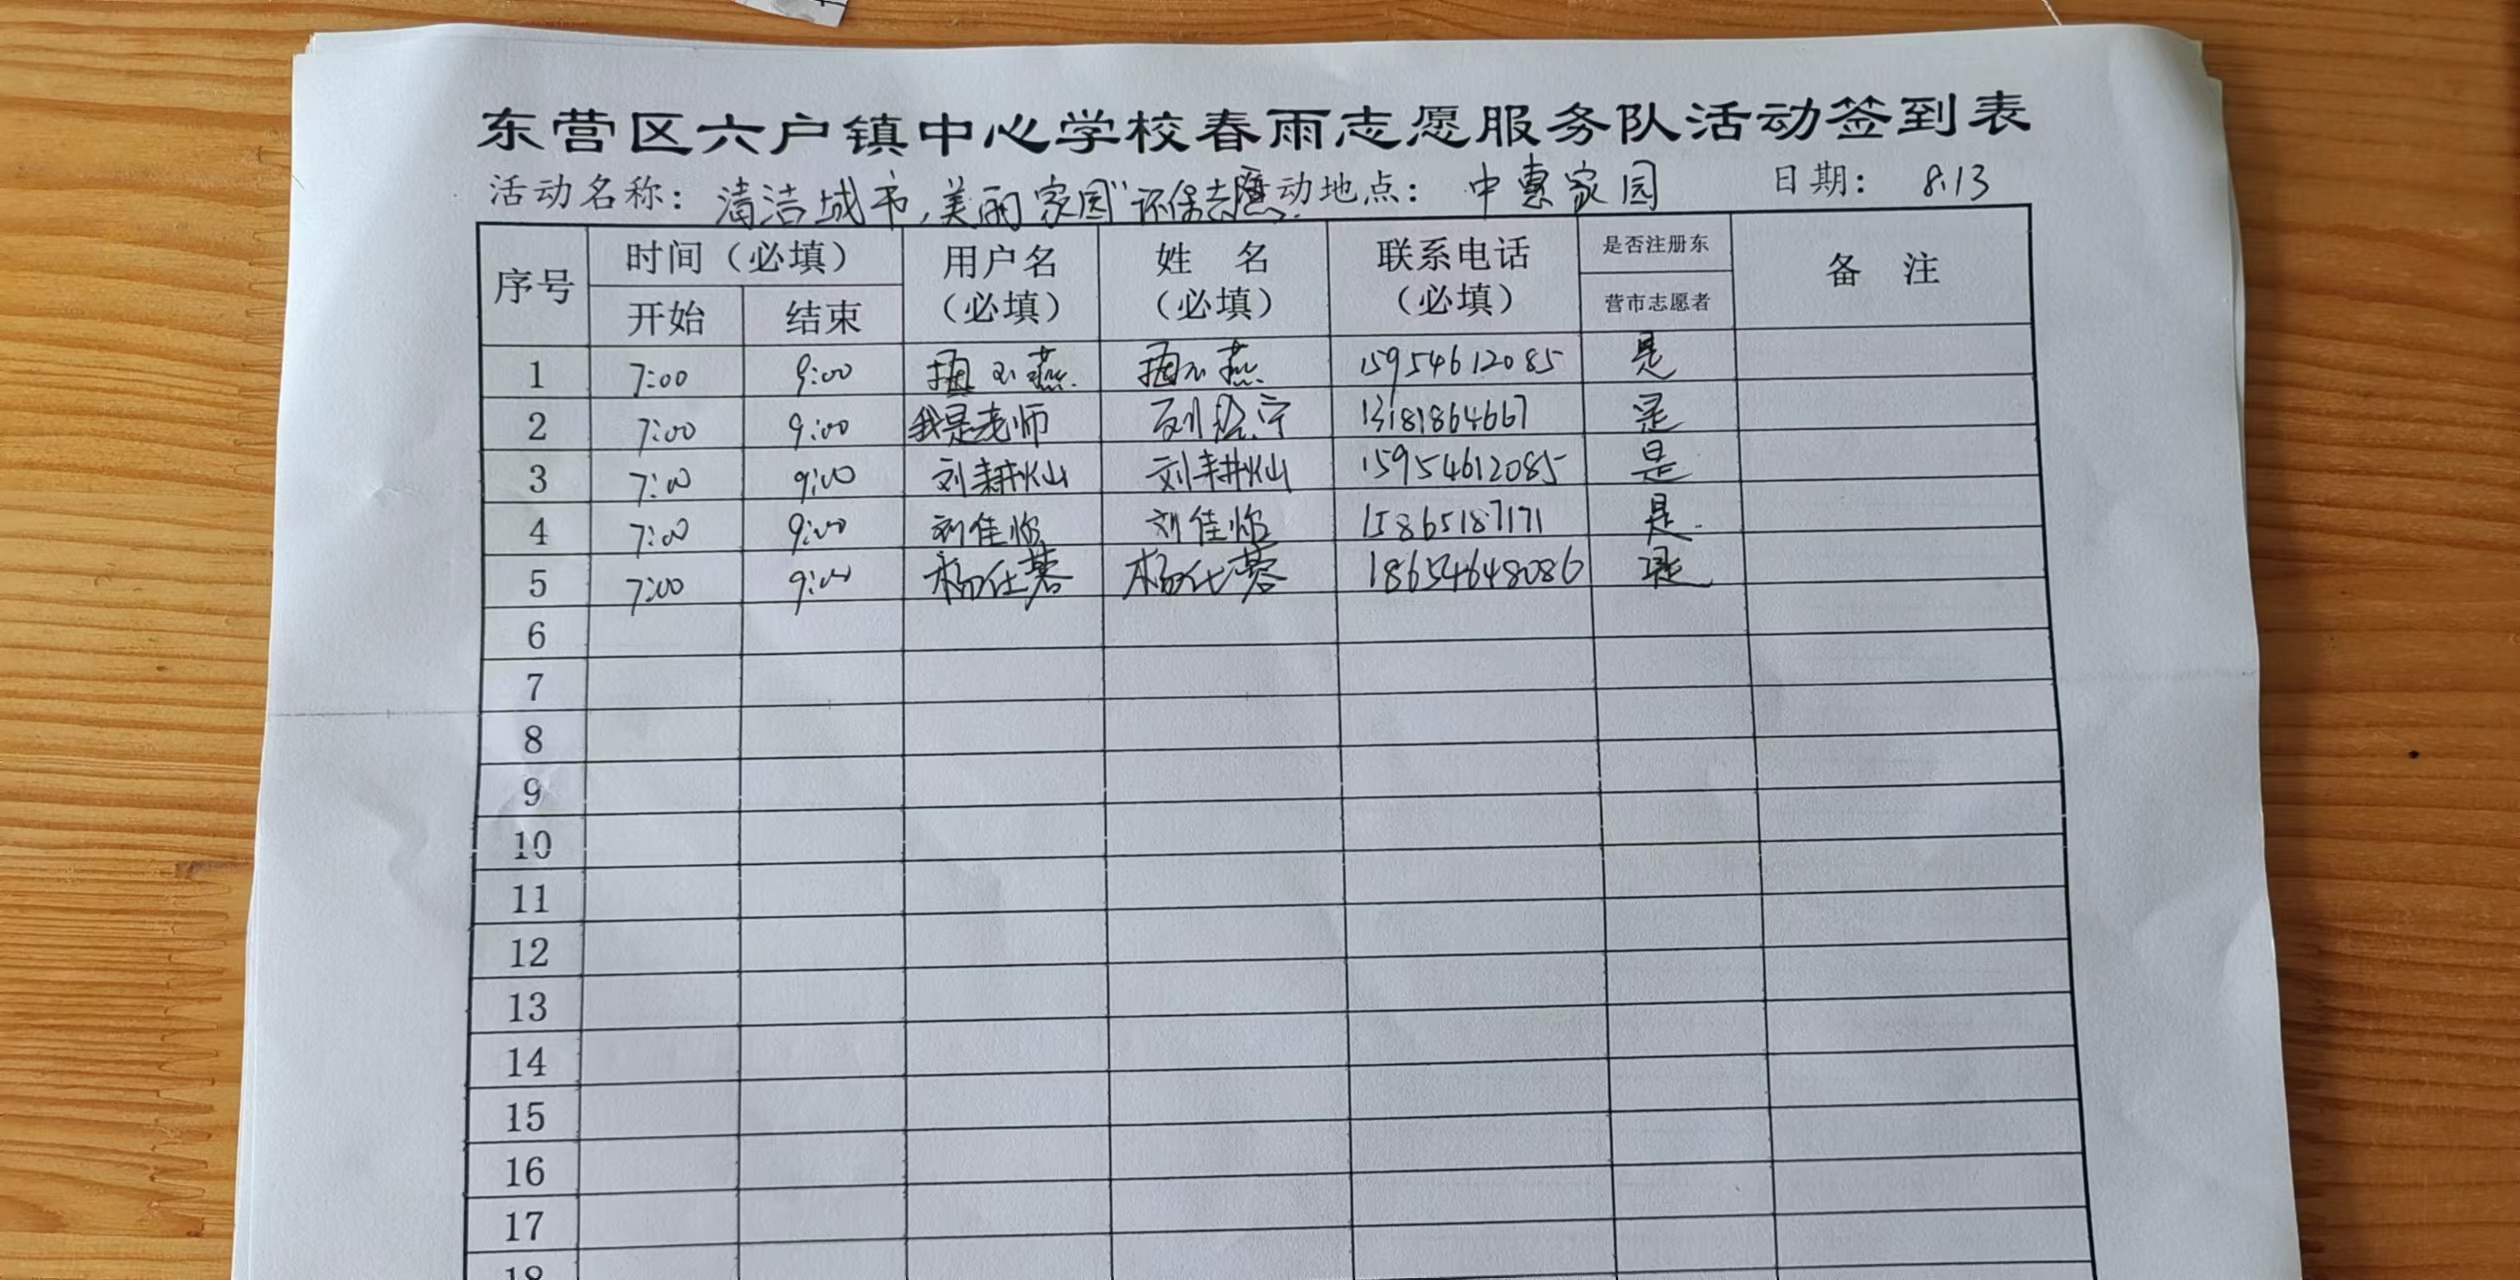 东营区六户镇中心学校春雨志愿服务队活动签到表
活动名称： 清洁城市,美丽家园"环保志愿 动地点： 中惠家园 日期： 8.13
序号 时间（必填） 用户名（必填） 姓 名（必填） 联系电话（必填） 是否注册东营市志愿者 备 注
开始 结束
1 7:00 9:00 燕 燕 15954612085 是
2 7:00 9:00 我是老师 刘 宁 13181864667 是
3 7:00 9:00 刘耕灿 刘耕灿 15954612085 是
4 7:00 9:00 刘佳怡 刘佳怡 15865187171 是
5 7:00 9:00 杨仕蓉 杨仕蓉 18654648086 是
6
7
8
9
10
11
12
13
14
15
16
17
18